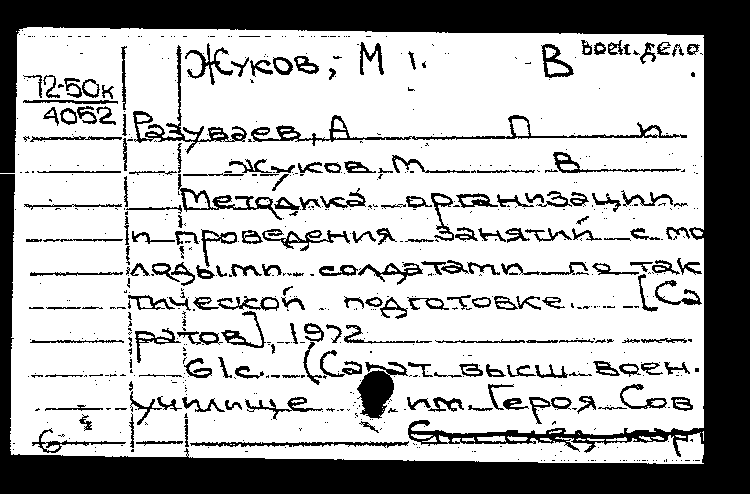 Жуков, М В воен. дело
72-50к
4052
Разуваев, А П и
Жуков, М В
Методика организации
и проведения занятий с мо
лодыми солдатами по так
тической подготовке. [Са
ратов], 1972
61с. (Сарат. высш. воен.
училище им. Героя Сов
См. след. карт
6